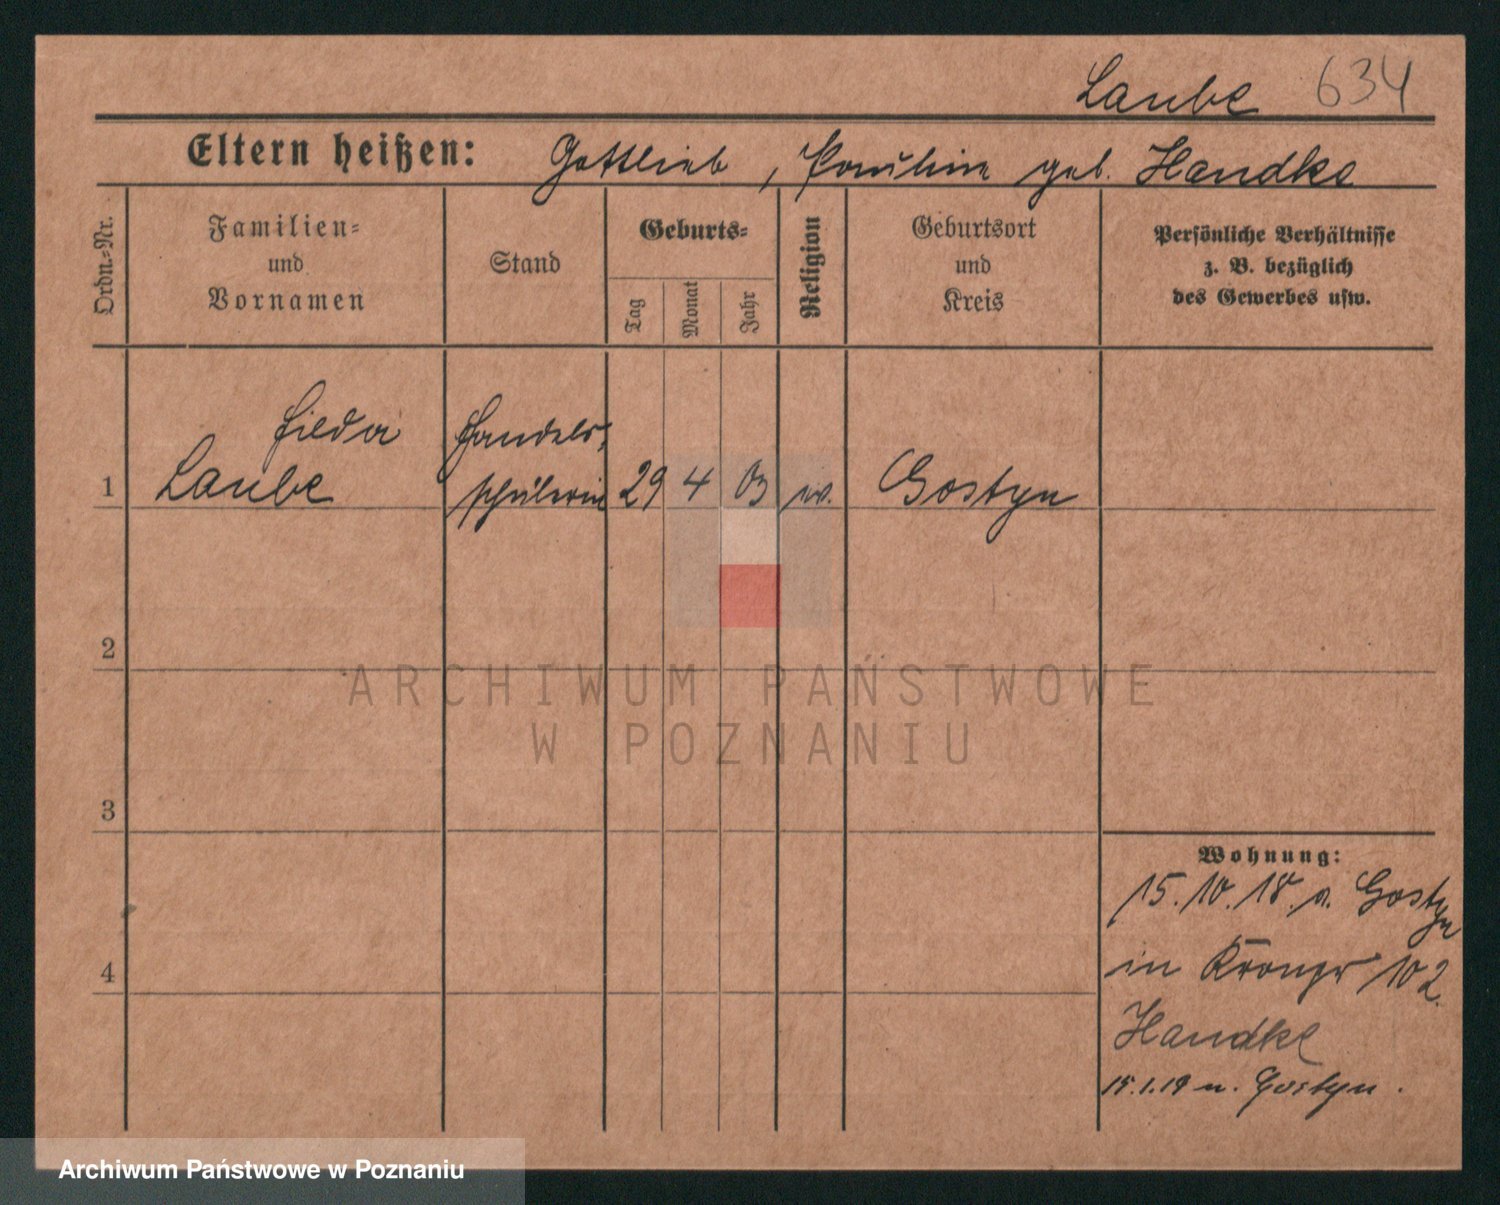 Laube 634
Eltern heißen: Gottlieb, Pauline geb. Handke
Ordn.-Nr.
Familien-
und
Vornamen
Stand
Geburts-
Tag
Monat
Jahr
Religion
Geburtsort
und
Kreis
Persönliche Verhältnisse
z. B. bezüglich
des Gewerbes usw.
Frieda Handels-
1 Laube schülerin 29 4 03 Gostyn
2
3
4
ARCHIWUM PAŃSTWOWE
W POZNANIU
Wohnung:
15.10.18. a. Gostyn
in 102
Handke
15.1.19 n. Gostyn.
Archiwum Państwowe w Poznaniu